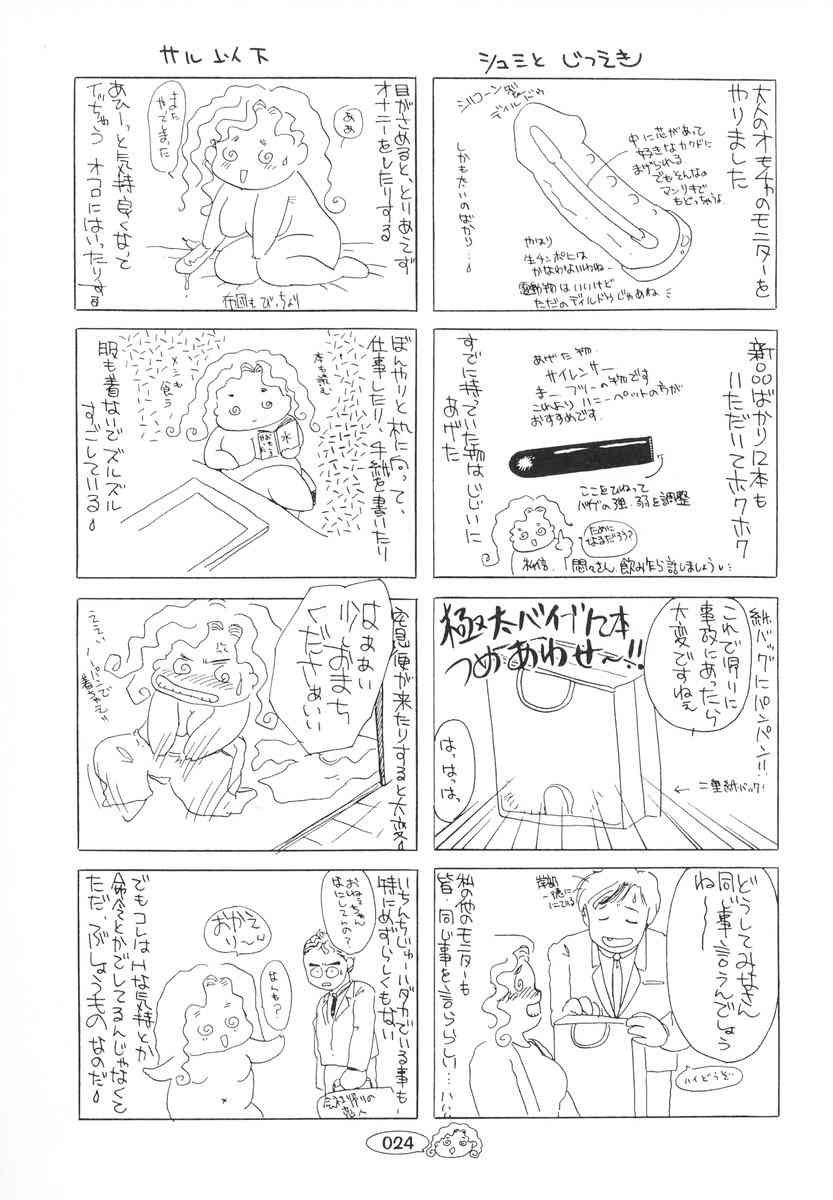 シュミと じつえき
大人のオモチャのモニターを
やりました
シリコーン製
ディルドゥ
中に芯があって
好きなカクドに
まげられる
でもそんなの
マンリキで
もどっちゃうよ
しかも太いのばかり…
やはり
生チンポには
かなわないわねー
電動物はいいけど
ただのディルドぅじゃあね
新品ばかり12本も
いただいてホクホク
すでに持っていた物はじじいに
あげた
あげた物．
サイレンサー
まーフツーの物です
これより ハニーペットの方が
おすすめです．
ここをひねって
バイブの強．弱を調整
ために
なるだろう？
私信．「悶々さん、飲み乍ら話しましょう
紙バッグにパンパン!!
これで帰りに
事故にあったら
大変ですねぇ
極太バイブ12本
つめあわせ〜!!
はっはっは、
←二重紙バック!
どうしてみなさん
同じ事言うんでしょう
ねー
私の他のモニターも
皆．同じ事を言うらしい…ハハ
ハイどうぞ
サル以下
目がさめると、とりあえず
オナニーをしたりする
ああ
また
やってしまった
あひーっと気持良くなって
イッちゃう オフロにはいったりする
布団もびっちょり
ぼんやりと机に向って、
仕事したり 手紙を書いたり
本も読む
メシも
食う
水
服も着ないで ズルズル
すごしている
宅急便が来たりすると大変
はぁぁい
少しおまち
くださぁいい
ええい
パンツまで
着ちゃえ
いちんちじゅーハダカでいる事も
特にめずらしくもない
おねぇちゃん
なにしてんの？
おかえ
り〜
なんも？
会社帰りの
恋人
でもコレはHな気持とか
命令とかでしてるんじゃなくて
ただ、ぶしょうもの なのだ
024